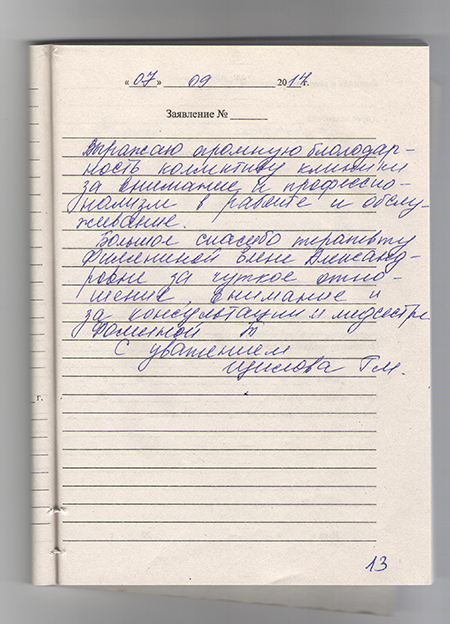 «07» 09 2017г.
Заявление №
Выражаю огромную благодар-
ность коллективу клиники
за внимание и профессио-
нализм в работе и обслу-
живание.
Большое спасибо терапевту
Елене Александ-
ровне за чуткое отно-
шение, внимание и
за консультации и медсестре
Фоминой Т
С уважением
Г.М.
г.
13